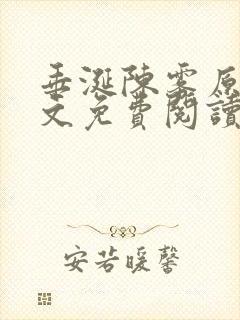 垂涎陳霧原
文免費閱讀
安若暖馨